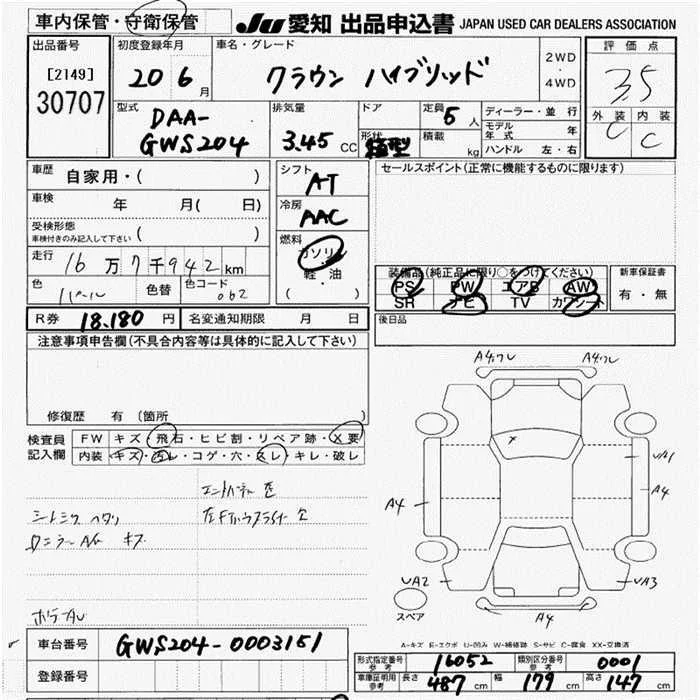 車内保管・守衛保管
JU 愛知 出品申込書 JAPAN USED CAR DEALERS ASSOCIATION
出品番号
[2149]
30707
初度登録年月
20 6月
車名・グレード
クラウン ハイブリッド
2WD
・
4WD
評価点
3.5
外装 内装
C C
型式
DAA-
GWS204
排気量
3.45 CC
ドア
形状
箱型
定員
5人
積載
kg
ディーラー・並行
モデル年式 年
ハンドル 左・右
車歴 自家用・( )
車検 年 月( 日)
受検形態
車検付きのみ記入して下さい ( )
走行 16万7千942km
色 パール 色替 色コード 062
シフト
AT
冷房
AAC
燃料
ガソリン
軽・油
( )
セールスポイント(正常に機能するものに限ります)
装備品(純正品に限り○をつけてください)
PS PW エアB AW
SR ナビ TV カワシート
新車保証書
有・無
R券 18,180円 名変通知期限 月 日
後日品
注意事項申告欄(不具合内容等は具体的に記入して下さい)
修復歴 有 (箇所 )
検査員
記入欄
FW キズ・飛石・ヒビ割・リペア跡・X要
内装 キズ・汚レ・コゲ・穴・スレ・キレ・破レ
シートミミ ヘタリ
キズ
A4.ワレ A4.ワレ
A4
UA1
A4
UA2
UA3
A4
スペア
A-キズ E-エクボ U-凹み W-補修跡 S-サビ C-腐食 XX-交換済
車台番号 GWS204-0003151
登録番号
形式指定番号 参考 16052 類別区分番号 参考 0001
車庫証明用 参考 長さ 487cm 幅 179cm 高さ 147cm